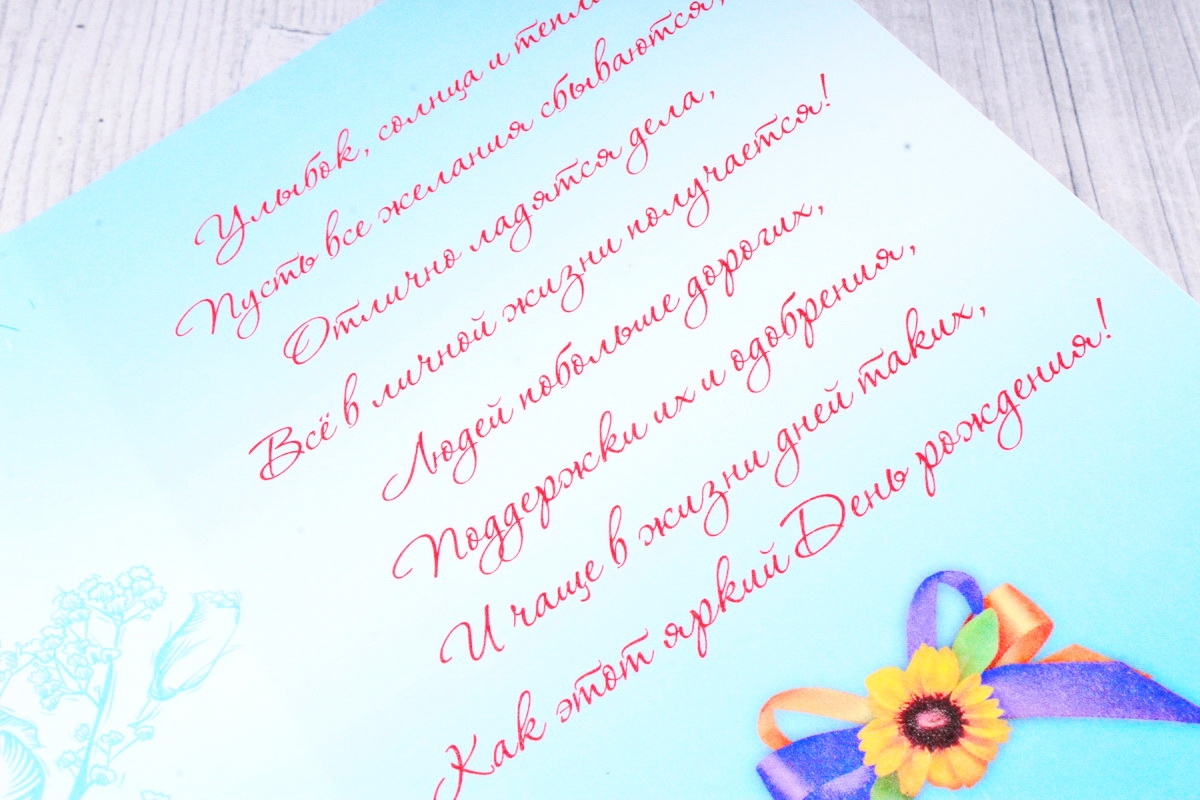 Улыбок, солнца и тепла
Пусть все желания сбываются,
Отлично ладятся дела,
Всё в личной жизни получается!
Людей побольше дорогих,
Поддержки их и одобрения,
И чаще в жизни дней таких,
Как этот яркий День рождения!